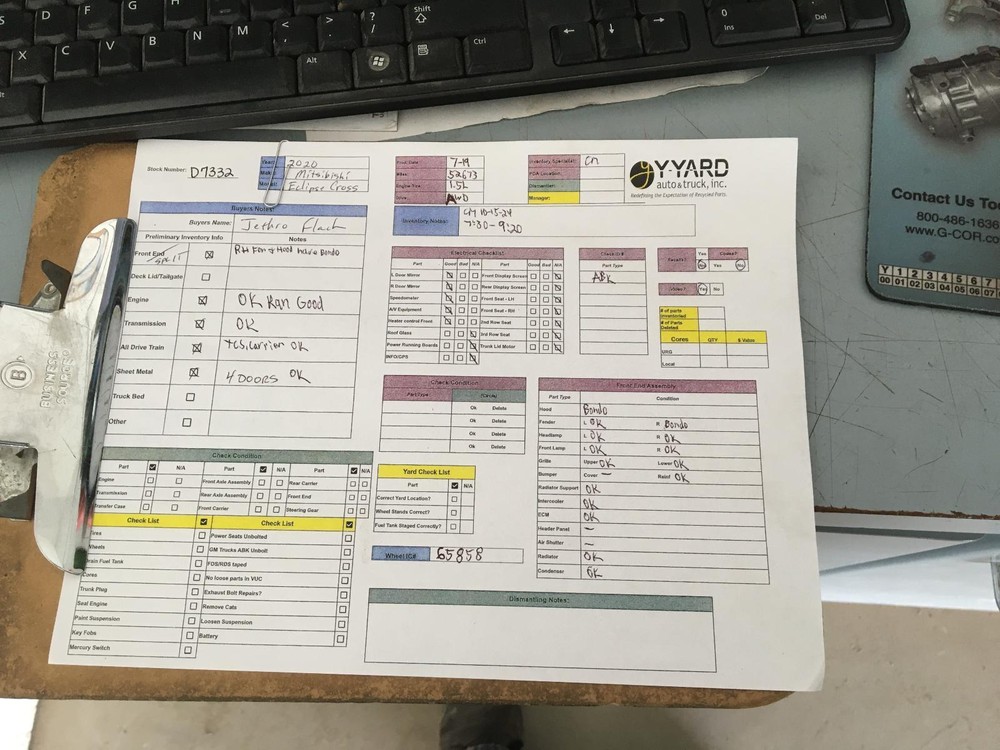 Shift
Alt
Ctrl
0
Ins
Del
X C V B N M
Stock Number: D7332
2020
Mitsibishi
Eclipse Cross
7-19
52673
1.5L
AWD
Inventory Specialist: Cn
Dismantler:
Manager:
Y-YARD
auto & truck, inc.
Redefining the Expectation of Recycled Parts.
Inventory Notes:
10-15-24
7:30-9:20
Buyers Notes:
Buyers Name: Jethro Flach
Preliminary Inventory Info Notes
Front End RH Fen & Hood have Bondo
Deck Lid/Tailgate
Engine OK Ran Good
Transmission OK
All Drive Train TCS, Carrier OK
Sheet Metal 4 DOORS OK
Truck Bed
Other
Electrical Checklist
Part Good Bad N/A Part Good Bad N/A
L Door Mirror Front Display Screen
R Door Mirror Rear Display Screen
Speedometer Front Seat - LH
A/V Equipment Front Seat - RH
Heater control Front 2nd Row Seat
Roof Glass 3rd Row Seat
Power Running Boards Trunk Lid Motor
INFO/GPS
Part Type
ABK
Yes No
# of parts
# of Parts
Deleted
Cores QTY $ Value
URG
Local
Check Condition
Part Type
Ok Delete
Ok Delete
Ok Delete
Ok Delete
Front End Assembly
Part Type Condition
Hood Bondo
Fender L OK R Bondo
Headlamp L OK R OK
Front Lamp L OK R OK
Grille Upper OK Lower OK
Bumper Cover – Reinf OK
Radiator Support OK
Intercooler OK
ECM OK
Header Panel –
Air Shutter –
Radiator OK
Condenser OK
Check Condition
Part N/A Part N/A Part N/A
Engine Front Axle Assembly Rear Carrier
Transmission Rear Axle Assembly Front End
Transfer Case Front Carrier Steering Gear
Yard Check List
Part N/A
Correct Yard Location?
Wheel Stands Correct?
Fuel Tank Staged Correctly?
Wheel IC# 65858
Check List Check List
Tires Power Seats Unbolted
Wheels GM Trucks ABK Unbolt
Drain Fuel Tank FOB/RDS taped
Cores No loose parts in VUC
Trunk Plug Exhaust Bolt Repairs?
Seal Engine Remove Cats
Paint Suspension Loosen Suspension
Key Fobs Battery
Mercury Switch
Dismantling Notes:
Contact Us To
800-486-1636
www.G-COR.co
Y 1 2 3 4 5 6 7
00 01 02 03 04 05 06 07